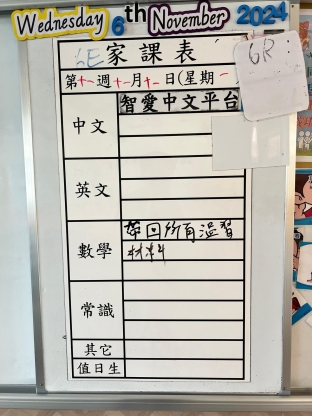 Wednesday 6th November 2024
6E家課表
6R
第十一週十一月十一日(星期一
中文
智愛中文平台
英文
數學
帶回所有溫習
材料
常識
其它
值日生